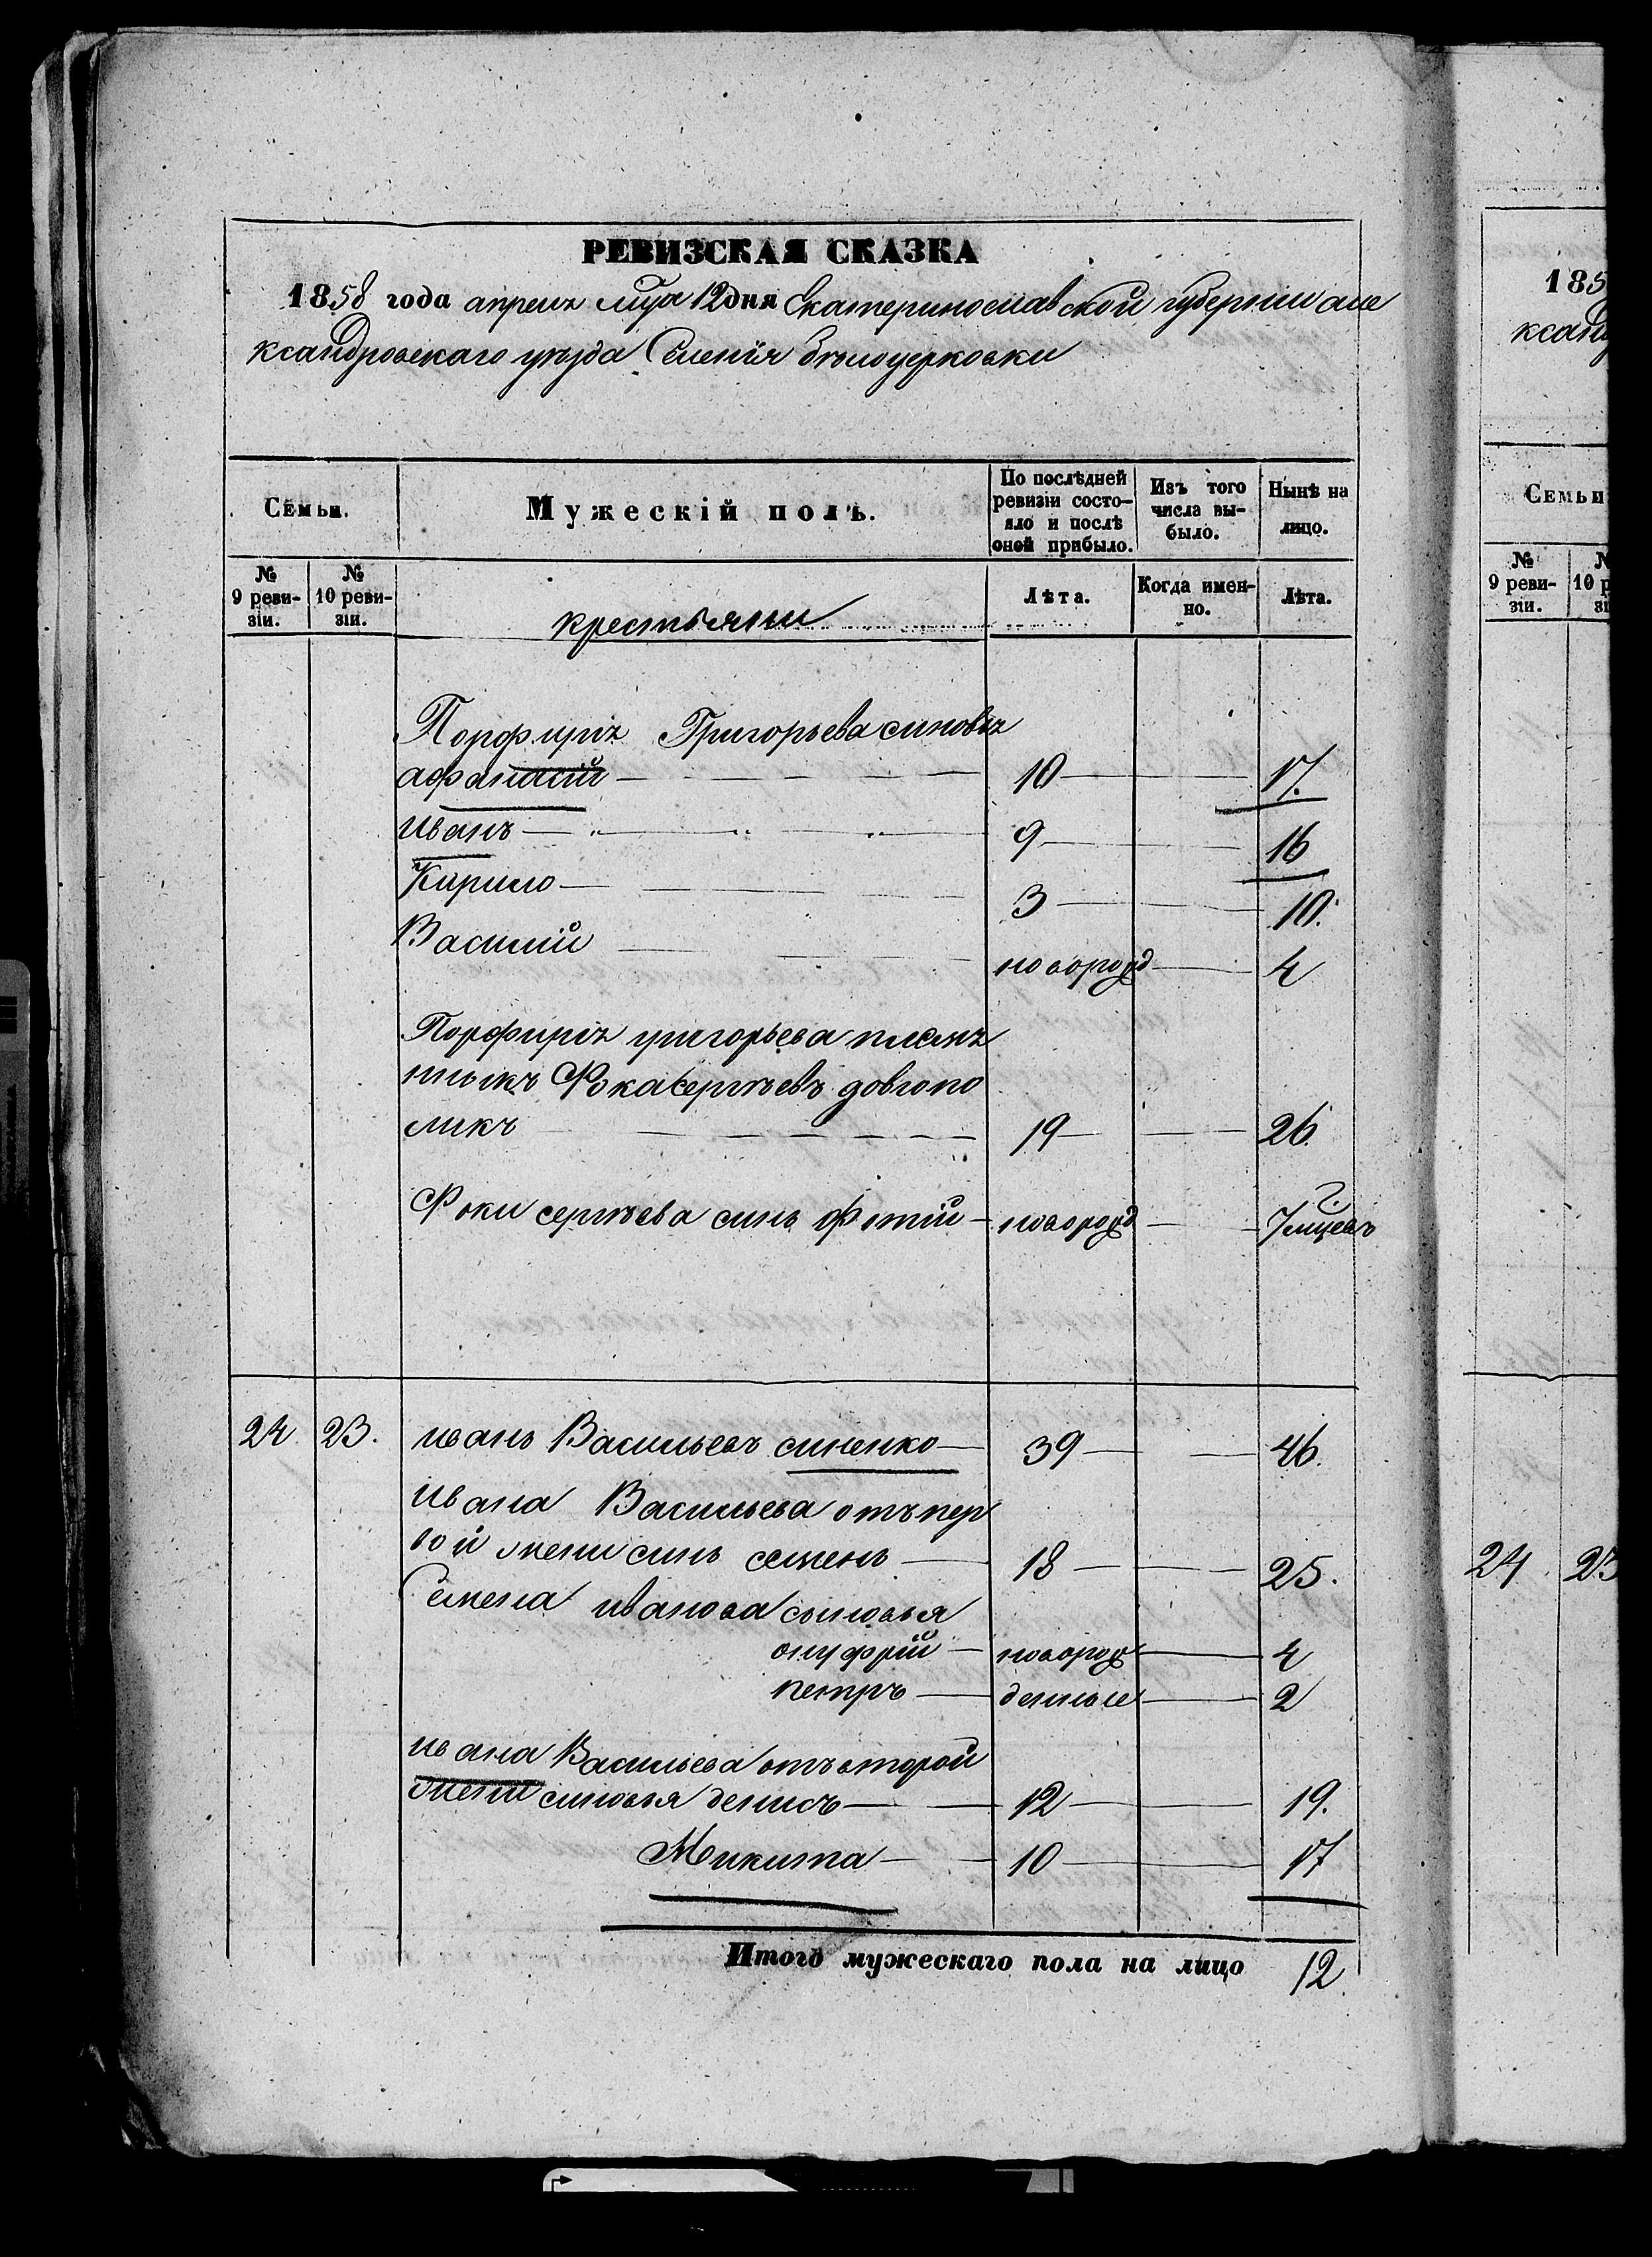 РЕВИЗСКАЯ СКАЗКА
1858 года апреля мця 12 дня Екатеринославской губернии але
ксандровскаго уѣзда Селенія бѣлоцерковки
Семьи.
Мужескій полъ.
По послѣдней ревизіи состо-
яло и послѣ оной прибыло.
Изъ того числа вы-
было.
Нынѣ на лицо.
№ 9 реви-
зіи.
№ 10 реви-
зіи.
крестьяни
Лѣта.
Когда имен-
но.
Лѣта.
Порфирія Григорьева синовья
афанасій 10 17.
Иванъ 9 16
Кирило 3 10.
Василий новорожд 4
Порфирія григорьева племя
ныкъ Фока Сергѣевъ довгопо
ликъ 19 26.
Фоки сергѣева синъ Фотій новорожд 7 мцевъ
24 23. иванъ Васильевъ синенко 39 46.
Ивана Васильева отъ пер
вой жени синъ семенъ 18 25.
Семена иванова сыновья
онуфрій новорож 4
петръ денные 2
ивана Васильева отъ второй
жени синовья денисъ 12 19.
Микита 10 17
Итого мужескаго пола на лицо 12.
185
ксанд
Семьи
№ 9 реви-
зіи.
24 23